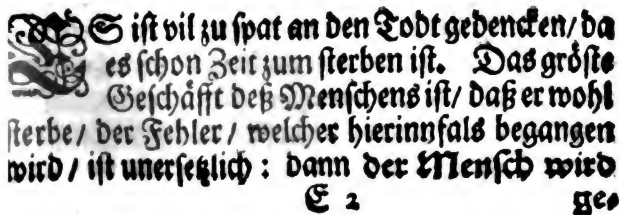 ES iſt vil zu ſpat an den Todt gedencken/ da
es ſchon Zeit zum ſterben iſt. Das gröſte
Geſchäfft deß Menſchens iſt/ daß er wohl
ſterbe/ der Fehler/ welcher hierinnfals begangen
wird/ iſt unerſetzlich: dann der Menſch wird
E 2 ge-